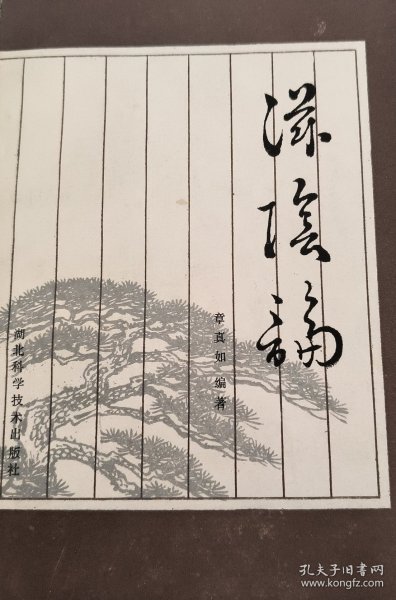 滋陰論
章真如编著
湖北科学技术出版社
孔夫子旧书网
www.kongfz.com